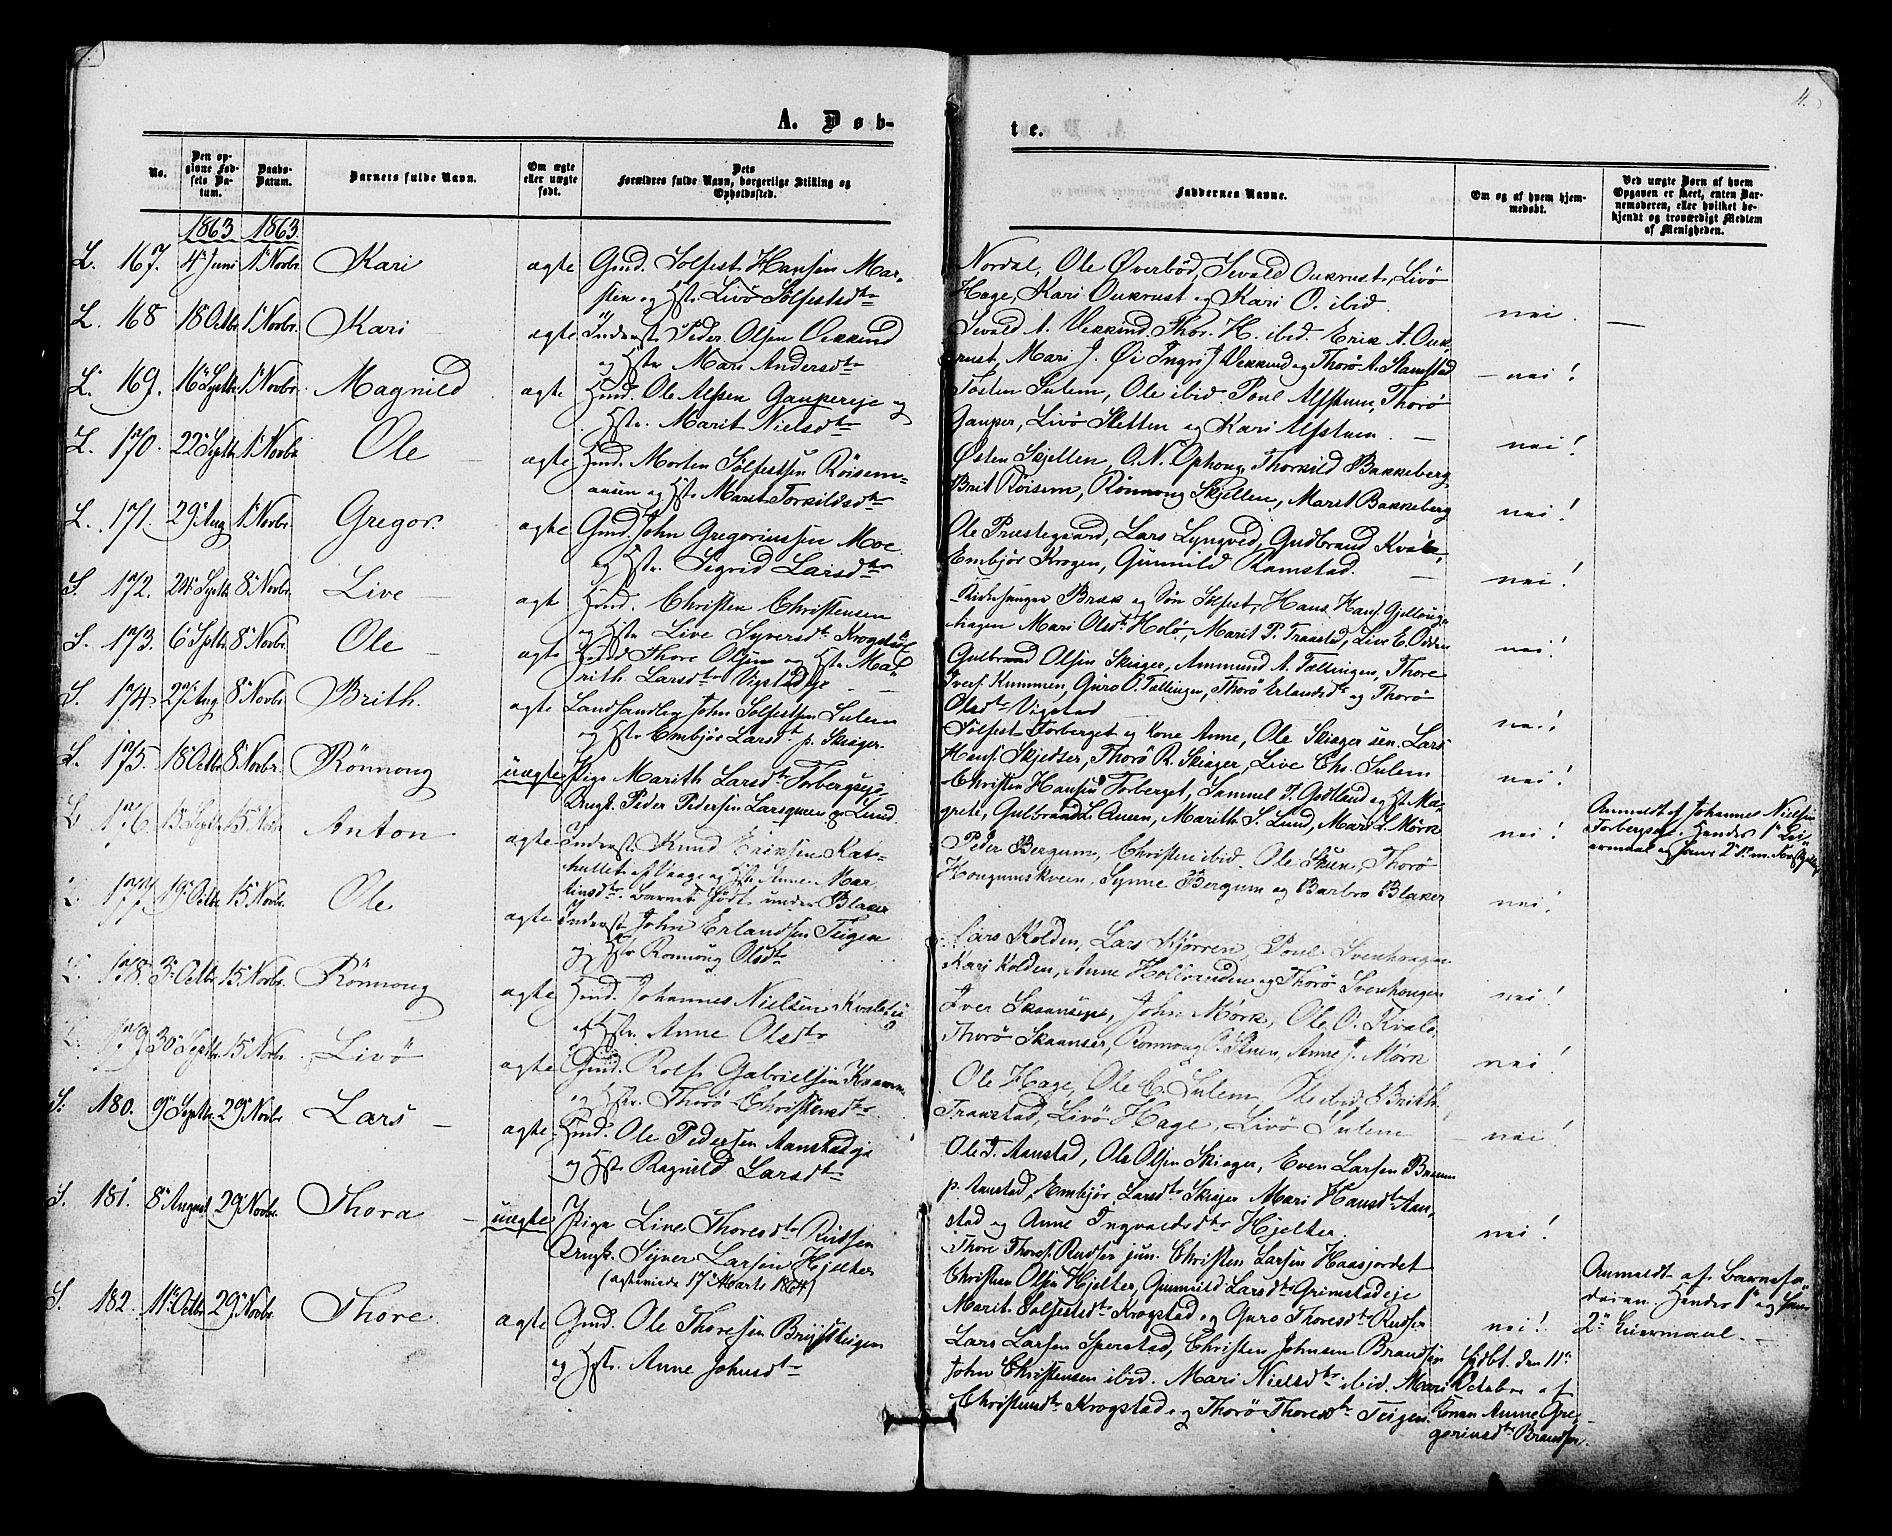 4.
A. Døb-
te.
No.
Den op-
givne Fød-
sels Da-
tum.
Daabs-
Datum.
Barnets fulde Navn.
Om ægte
eller uægte
født.
Dets
Forældres fulde Navn, borgerlige Stilling og
Opholdssted.
Faddernes Navne.
Om og af hvem hjem-
medøbt.
Ved uægte Børn af hvem
Opgaven er skeet, enten Bar-
nemoderen, eller hvilket be-
kjendt og troværdigt Medlem
af Menigheden.
1863 1863
L. 167. 4de Juni 1ste Novbr. Kari ægte Gmd. Solfest Hansen Mar-
sten og Hstr. Livö Solfestsdtr
Nordal, Ole Överböd, Sevald Oukrust, Livö
Hage, Kari Oukrust og Kari O. ibid. nei.
L. 168 18 Octbr. 1ste Novbr. Kari ægte Inderst Peder Olsen Vekkind
og Hstr. Mari Andersdtr
Sevald A. Vekkind Thor. H. ibid. Erik A. Ouk-
rust, Mari J. Öi Ingri J Vekkind og Thorö A. Stamstad nei!
L. 169. 16 Septbr. 1ste Novbr. Magnild ægte Hmd. Ole Alfsen Gaupereje og
Hstr. Marit Nielsdtr
Tosten Sulem, Ole ibid Poul Alfstuen, Thorö
Gauper, Livö Sletten og Kari Alfstuen. nei!
L. 170. 22 Septbr. 1ste Novbr. Ole ægte Hmd. Morten Solfestsen Röisem-
ausen og Hstr. Marit Torkildsdtr
Östen Skjellen, O. N. Ophoug, Thorkild Bakkeberg
Brit Röisem, Rönnoug Skjellen, Marit Bakkeberg nei!
L. 171. 29 Aug 1ste Novbr. Gregor. ægte Gmd. John Gregoriussen Moe
og Hstr. Sigrid Larsdtr
Ole Præstegaard, Lars Lyngved, Gudbrand Kvale,
Embjör Krogen, Gunnild Ramstad. nei!
S. 172. Septbr. 8de Novbr. Live ægte Hmd. Christen Christensen
og Hstr. Live Syversdtr Krogstad
Kirkesanger Bræk og Sön Solfest, Hans Hans. Gjetloug-
hagen Mari Olsdtr Holö, Marit P. Traastad, Live E. Odden nei!
S. 173. 6 Septbr. 8de Novbr. Ole ægte Thore Olsen og Hstr. Ma-
rith Larsdtr Vigstadeje
Gulbrand Olsen Skiager, Ammund A. Tællingen, Thore
Ivers. Kummen, Guro O. Tællingen, Thorö Erlandsdtr og Thorö
Olsdtr Vigstad nei!
S. 174 27 Aug. 8de Novbr. Brith. ægte Landhandler John Solfestsen Sulem
og Hstr. Embjör Larsdtr p. Skiager.
Solfest Forberget og Kone Anne, Ole Skiager sen. Lars
Hans. Skjedser, Thorö R. Skiager, Live Chr. Sulem nei!
S. 175. 18 Octbr. 8de Novbr. Rönnoug uægte Pige Marith Larsdtr Forbergseje
Ungk. Peder Pedersen Larsgaren og Lund.
Christen Hansen Forberget, Samuel T. Godtland og Hstr Ma-
grete, Gulbrand L. Queen, Marith S. Lund, Mari L. Mörk nei!
Anmeldt af Johannes Nielsen
Forbergse. Hendes 1ste Lei-
ermaal og hans 2det
L. 176. 15 Septbr. 15 Novbr. Anton ægte Inderst Knud Eriksen Kat-
hullet af Vaage og Hstr Anne Mar
tinsdtr. Barnet født under Blaker
Peder Bergum, Christen ibid. Ole Skien, Thorö
Hougumskveen, Synne Bergum og Barbro Blaker nei.
177 19 Octbr. 15 Novbr. Ole ægte Inderst John Erlandsen Teigen
og Hstr Rönnoug Olsdtr
Lars Kolden, Lars Kjörren, Poul Svenhougen
Kari Kolden, Anne og Thorö Svenhougen nei!
178. 3 Octbr. 15 Novbr. Rönnoug ægte Hmd. Johannes Nielsen Kvaleeie
og Hstr. Anne Olsdtr
Iver Skaanseeie, John Mörk, Ole O. Kvale,
Thorö Skaanser, Rönnoug P. Skien, Anne J. Mörk nei!
179 30 Septbr. 15 Novbr. Livö ægte Gmd. Rolf Gabrielsen
og Hstr. Thorö Christensdtr
Ole Hage, Ole C. Sulem, Ole ibid, Brith
Traastad, Livö Hage, Livö Sulem nei!
S. 180. 9de Septbr. 29 Novbr. Lars ægte Hmd. Ole Pedersen Aanstadeje
og Hstr. Ragnild Larsdtr
Ole T. Aanstad, Ole Olsen Skiager, Even Larsen
p. Aanstad, Embjör Larsdtr Skiager Mari Hansdtr Aan-
stad og Anne Ingvaldsdtr Hjelter. nei!
S. 181. 8de August 29 Novbr. Thora uægte Pige Live Thoresdtr Rudsen
Ungk. Syver Larsen Hjelter
(ægteviede 17de Marts 1864)
Thore Thores. Rudsen jun. Christen Larsen Haasjordet
Christen Olsen Hjelter, Gunnild Larsdtr Grimstadeje
Marit Solfestsdtr Krogstad og Guro Thoresdtr Rudsen nei!
Anmeldt af Barnefa-
deren. Hendes 1ste og hans
2det Leiermaal.
S. 182. 11te Octbr. 29 Novbr. Thore ægte Gmd. Ole Thoresen Bryggteigen
og Hstr. Anne Johnsdtr
Lars Larsen Sperstad, Christen Johnsen Brandsen
John Christensen ibid. Mari Nielsdtr ibid. Mari
Christensdtr Krogstad og Thorö Thoresdtr Teigen.
hjdbt. den 11te
October af
Konen Anne Gre-
goriusdtr Brandsen.